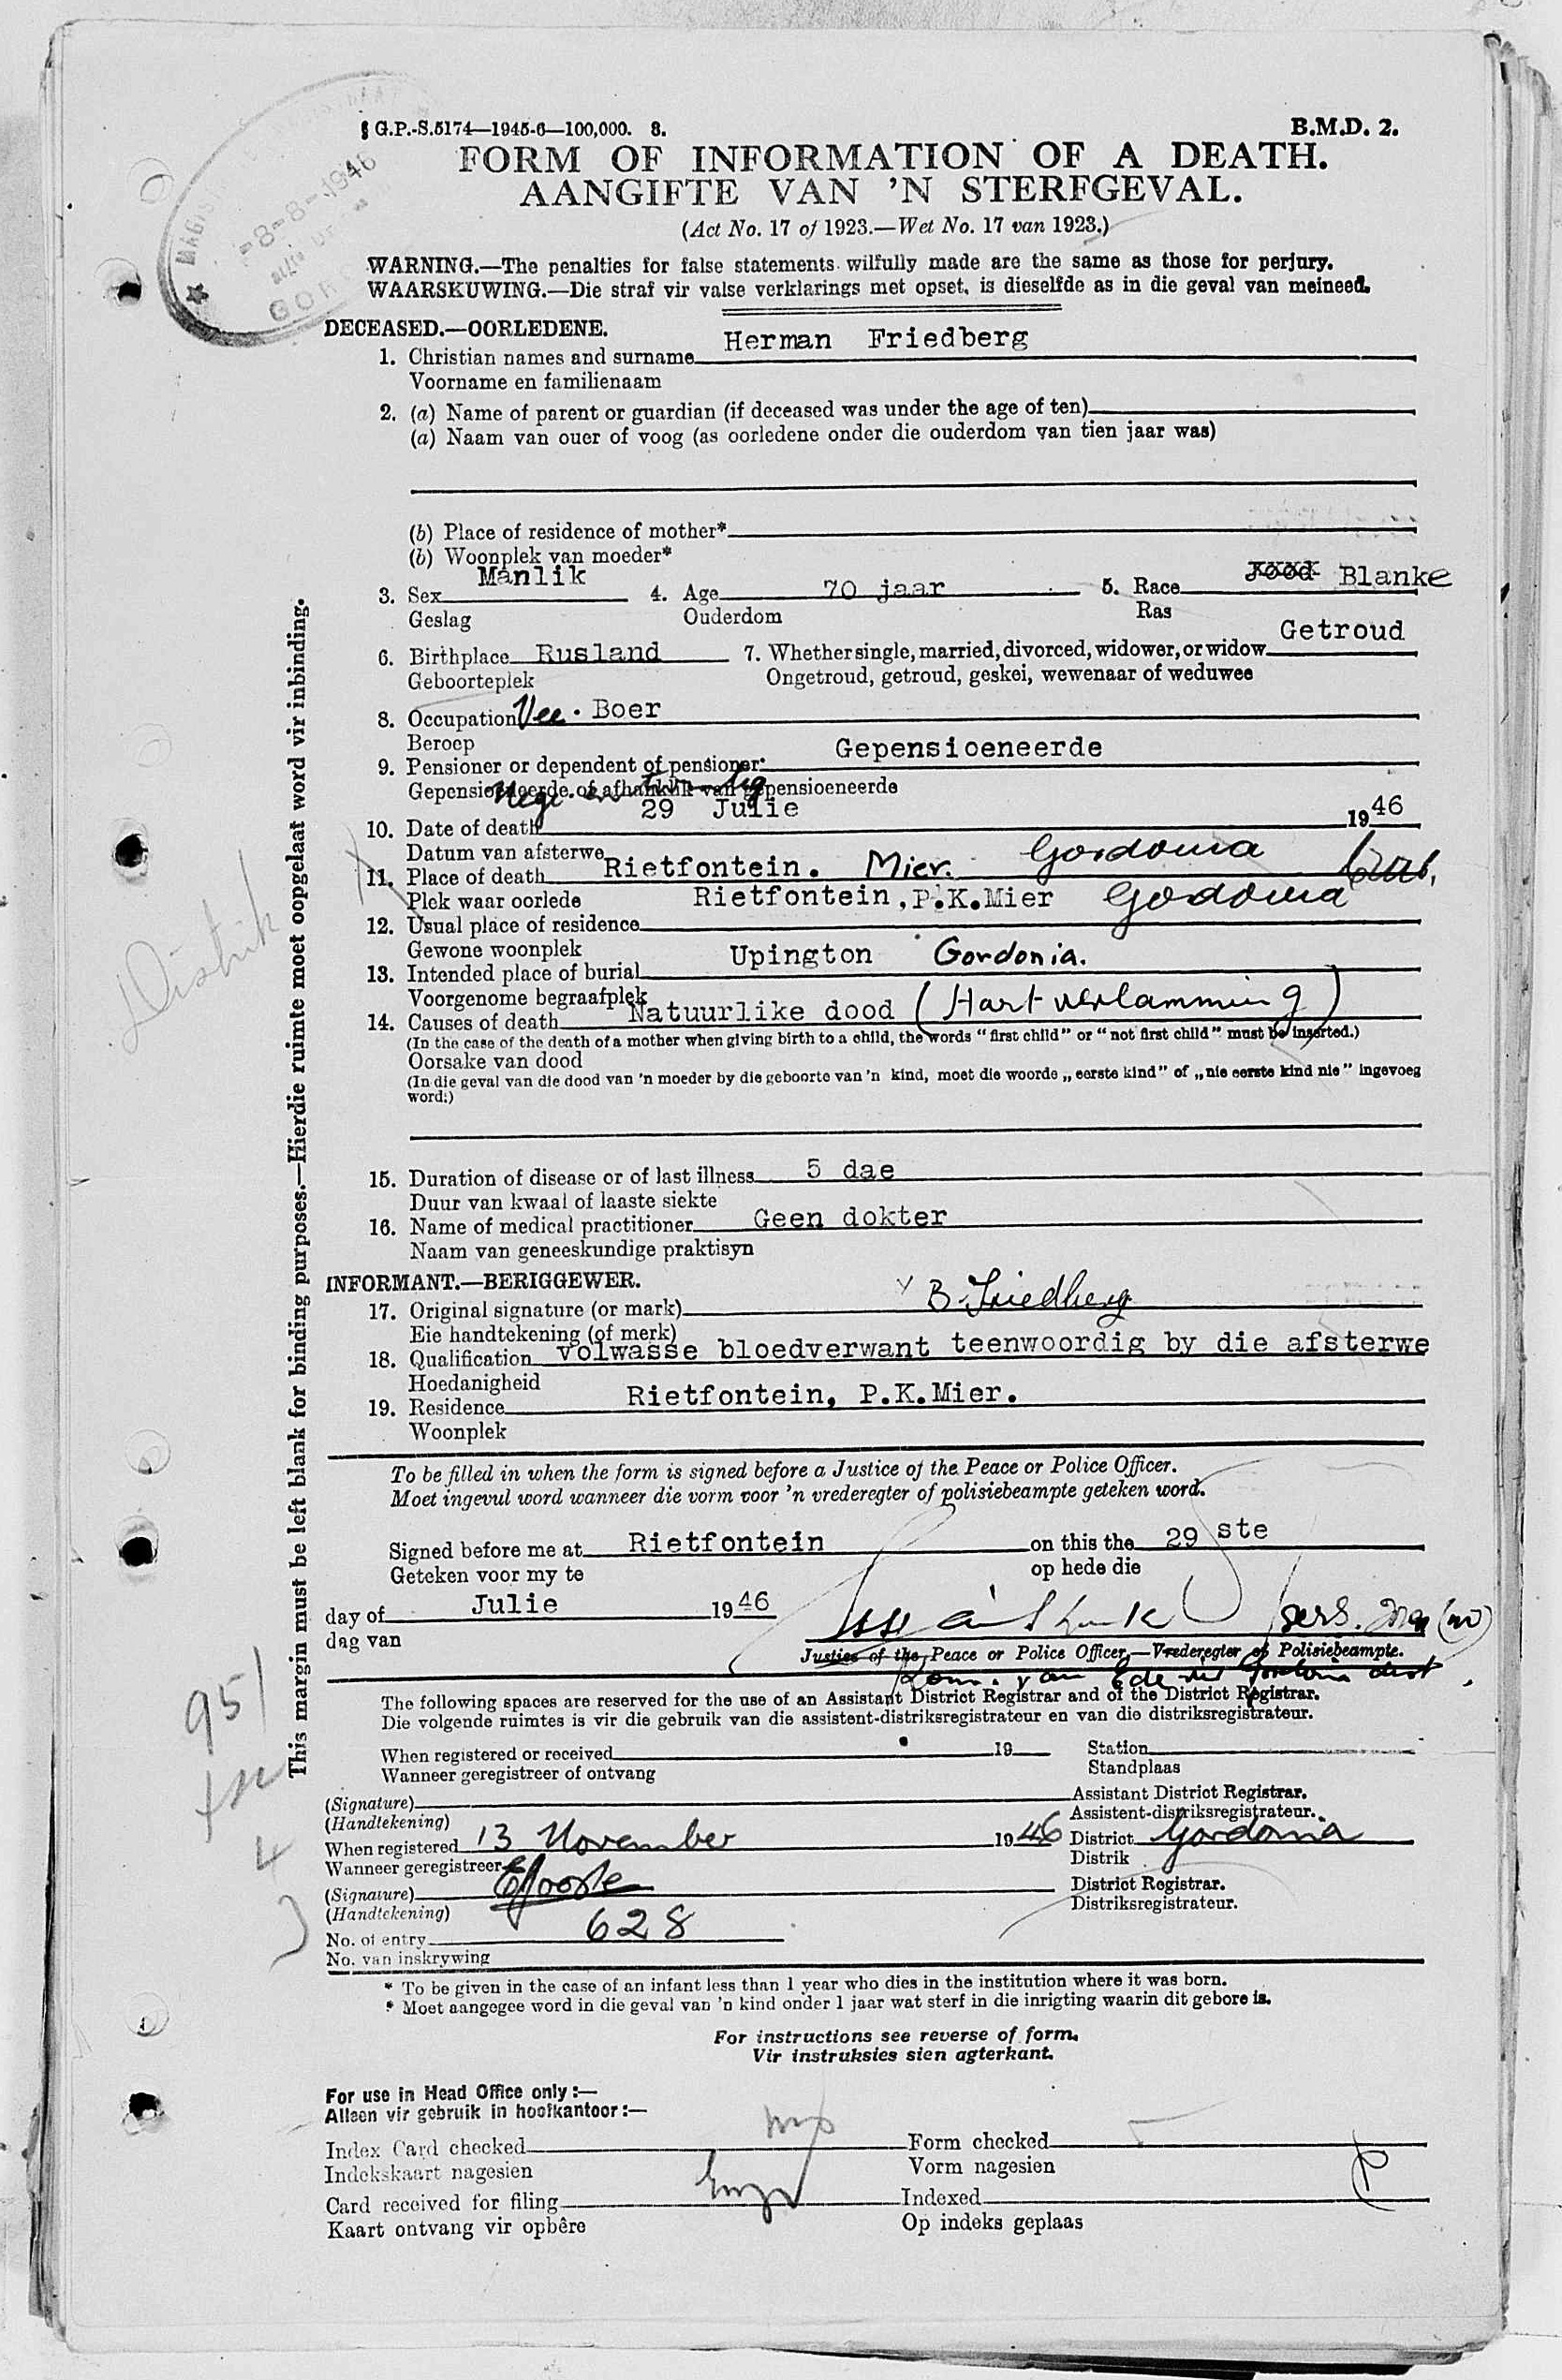 G.P.-S.5174—1945-6—100,000. 8. B.M.D. 2.
FORM OF INFORMATION OF A DEATH.
AANGIFTE VAN 'N STERFGEVAL.
(Act No. 17 of 1923.—Wet No. 17 van 1923.)
-8-8-1946
WARNING.—The penalties for false statements wilfully made are the same as those for perjury.
WAARSKUWING.—Die straf vir valse verklarings met opset, is dieselfde as in die geval van meineed.
DECEASED.—OORLEDENE.
1. Christian names and surname Herman Friedberg
Voorname en familienaam
2. (a) Name of parent or guardian (if deceased was under the age of ten)
(a) Naam van ouer of voog (as oorledene onder die ouderdom van tien jaar was)
(b) Place of residence of mother*
(b) Woonplek van moeder*
3. Sex Manlik 4. Age 70 jaar 5. Race Jood Blanke
Geslag Ouderdom Ras
6. Birthplace Rusland 7. Whether single, married, divorced, widower, or widow Getroud
Geboorteplek Ongetroud, getroud, geskei, wewenaar of weduwee
8. Occupation Vee. Boer
Beroep
9. Pensioner or dependent of pensioner: Gepensioeneerde
Gepensioeneerde of afhanklik van gepensioeneerde
Nege en twintig
10. Date of death 29 Julie 1946
Datum van afsterwe
11. Place of death Rietfontein. Mier. Gordonia
Plek waar oorlede
12. Usual place of residence Rietfontein, P.K.Mier Gordonia
Gewone woonplek
13. Intended place of burial Upington Gordonia.
Voorgenome begraafplek
14. Causes of death Natuurlike dood (Hartverlamming)
(In the case of the death of a mother when giving birth to a child, the words "first child" or "not first child" must be inserted.)
Oorsake van dood
(In die geval van die dood van 'n moeder by die geboorte van 'n kind, moet die woorde „eerste kind" of „nie eerste kind nie" ingevoeg
word.)
15. Duration of disease or of last illness 5 dae
Duur van kwaal of laaste siekte
16. Name of medical practitioner Geen dokter
Naam van geneeskundige praktisyn
INFORMANT.—BERIGGEWER.
17. Original signature (or mark) B. Friedberg
Eie handtekening (of merk)
18. Qualification Volwasse bloedverwant teenwoordig by die afsterwe
Hoedanigheid
19. Residence Rietfontein, P.K.Mier.
Woonplek
To be filled in when the form is signed before a Justice of the Peace or Police Officer.
Moet ingevul word wanneer die vorm voor 'n vrederegter of polisiebeampte geteken word.
Signed before me at Rietfontein on this the 29 ste
Geteken voor my te op hede die
day of Julie 1946
dag van
Justice of the Peace or Police Officer.—Vrederegter of Polisiebeampte.
Kom. van Ede
The following spaces are reserved for the use of an Assistant District Registrar and of the District Registrar.
Die volgende ruimtes is vir die gebruik van die assistent-distriksregistrateur en van die distriksregistrateur.
When registered or received 19 Station
Wanneer geregistreer of ontvang Standplaas
(Signature) Assistant District Registrar.
(Handtekening) Assistent-distriksregistrateur.
When registered 13 November 1946 District Gordonia
Wanneer geregistreer Distrik
(Signature) District Registrar.
(Handtekening) Distriksregistrateur.
No. of entry 628
No. van inskrywing
* To be given in the case of an infant less than 1 year who dies in the institution where it was born.
* Moet aangegee word in die geval van 'n kind onder 1 jaar wat sterf in die inrigting waarin dit gebore is.
For instructions see reverse of form.
Vir instruksies sien agterkant.
For use in Head Office only:—
Alleen vir gebruik in hoofkantoor:—
Index Card checked Form checked
Indekskaart nagesien Vorm nagesien
Card received for filing Indexed
Kaart ontvang vir opbêre Op indeks geplaas
This margin must be left blank for binding purposes.—Hierdie ruimte moet oopgelaat word vir inbinding.
Distrik
951